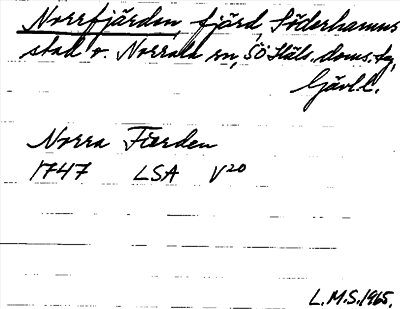 Norrfjärden, fjärd, Söderhamns
stad o. Norrala sn, SÖ Häls. doms. tg,
Gävl. l.
Norra Fierden
1747 LSA V20
L.M.S. 1965.